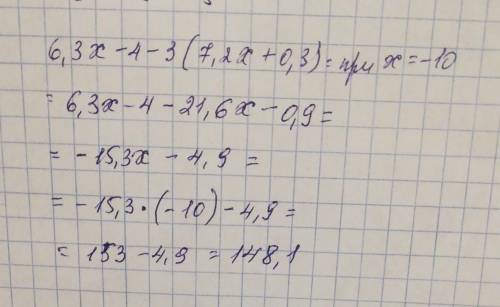 6,3x - 4 - 3(7,2x + 0,3) = при x = -10
= 6,3x - 4 - 21,6x - 0,9 =
= - 15,3x - 4,9 =
= - 15,3 · (-10) - 4,9 =
= 153 - 4,9 = 148,1